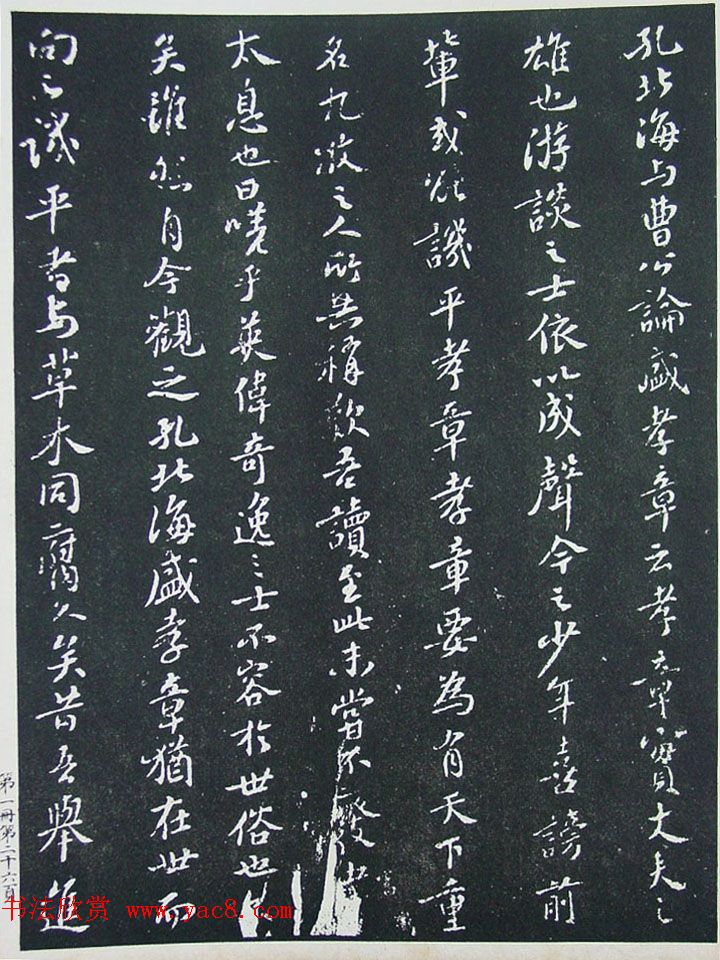 孔北海与曹公論盛孝章云孝章實大夫之
雄也游談之士依以成聲今之少年喜謗前
輩或能譏平孝章孝章要為有天下重
名九牧之人所共稱歎吾讀至此未嘗不廢書
太息也曰嗟乎英偉奇逸之士不容於世俗也
矣雖然自今觀之孔北海盛孝章猶在世而
向之譏平者与草木同腐久矣昔吾舉進
第一冊第二十六頁
书法欣赏 www.yac8.com